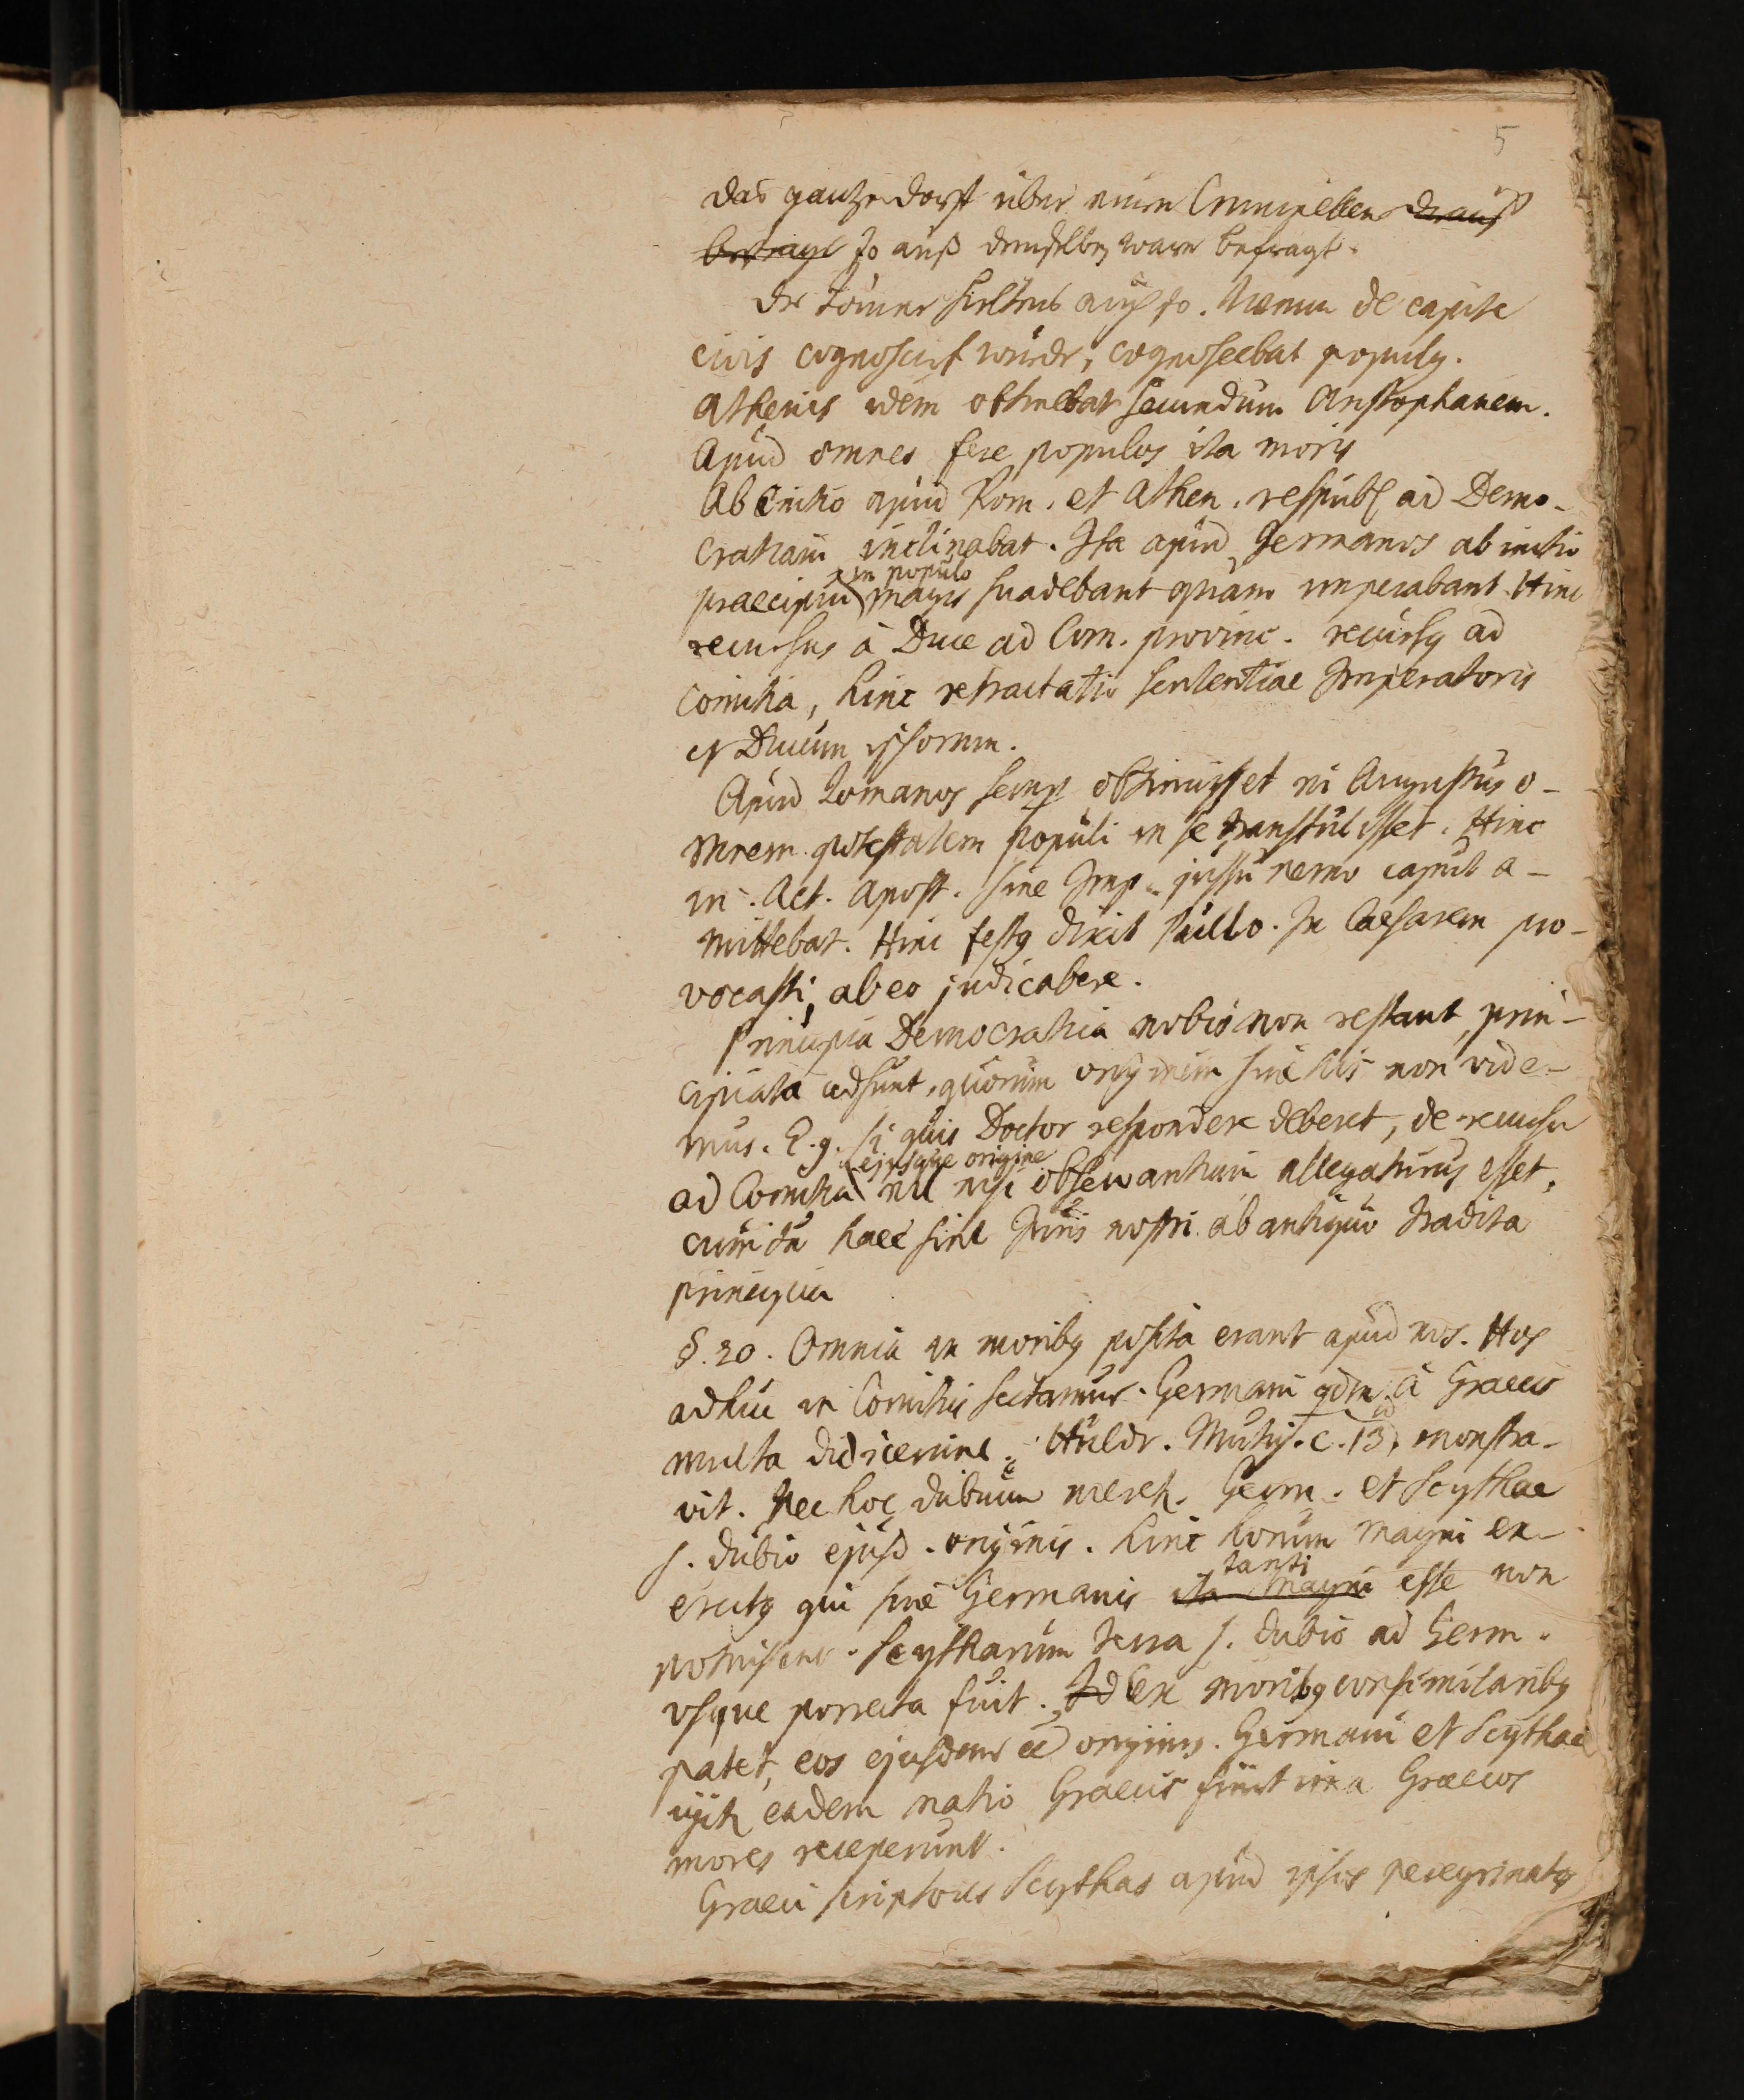 5
das gantze dorff über einen Criminellen darauß
befragt so auß demselben ware befragt.
Die Römer hieltens auch so. Wenn de capite
civis cognoscirt wurde, cognoscebat populus.
Athenis idem obtinebat secundum Aristophanem.
Apud omnes fere populos ita moris
Ab initio apud Rom. et Athen. respubl ad Demo-
cratiam inclinabat. Ita apud Germanos ab initio
in populo
praecipui magis suadebant quam imperabant. Hinc
recursus à Duce ad Com. provinc. recursus ad
Comitia, hinc retractatio sententiae Imperatoris
et Ducum ipsorum.
Apud Romanos semp obtinuisset ni Augustus o-
mnem potestatem populi in se transtulisset. Hinc
in Act. Apost. sine Imp. jussu nemo caput a-
mittebat. Hinc festus dixit Paullo. In Caesarem pro-
vocasti, ab eo judicabere.
Principia Democratica nobis non restant, prin-
cipiata adsunt, quorum originem sine his non vide-
mus. E.g. si quis Doctor respondere deberet, de recursu
ejusque origine
ad Comitia nil nisi observantiam allegaturus esset,
cum tn haec sint Juris nostri ab antiquo tradita
principia
§. 20. Omnia in moribus posita erant apud nos. Hos
adhuc in Comitiis sectamur. Germani qdm à Graecis
multa didicerunt. Huldr. Mutius. c. 13. monstra-
vit. Nec hoc dubium meret. Germ. et Scythae
s. dubio ejusd. originis. hinc horum magni ex-
tanti
ercitus qui sine Germanis ita magni esse non
potuissent. Scytharum terra s. dubio ad Germ.
usque porrecta fuit. Id Ex moribus consimilaribus
patet, eos ejusdem ee originis. Germani et Scythae
eadem natio Graecis Graecos
mores receperunt.
Graeci scriptores Scythas apud ipsos peregrinatos